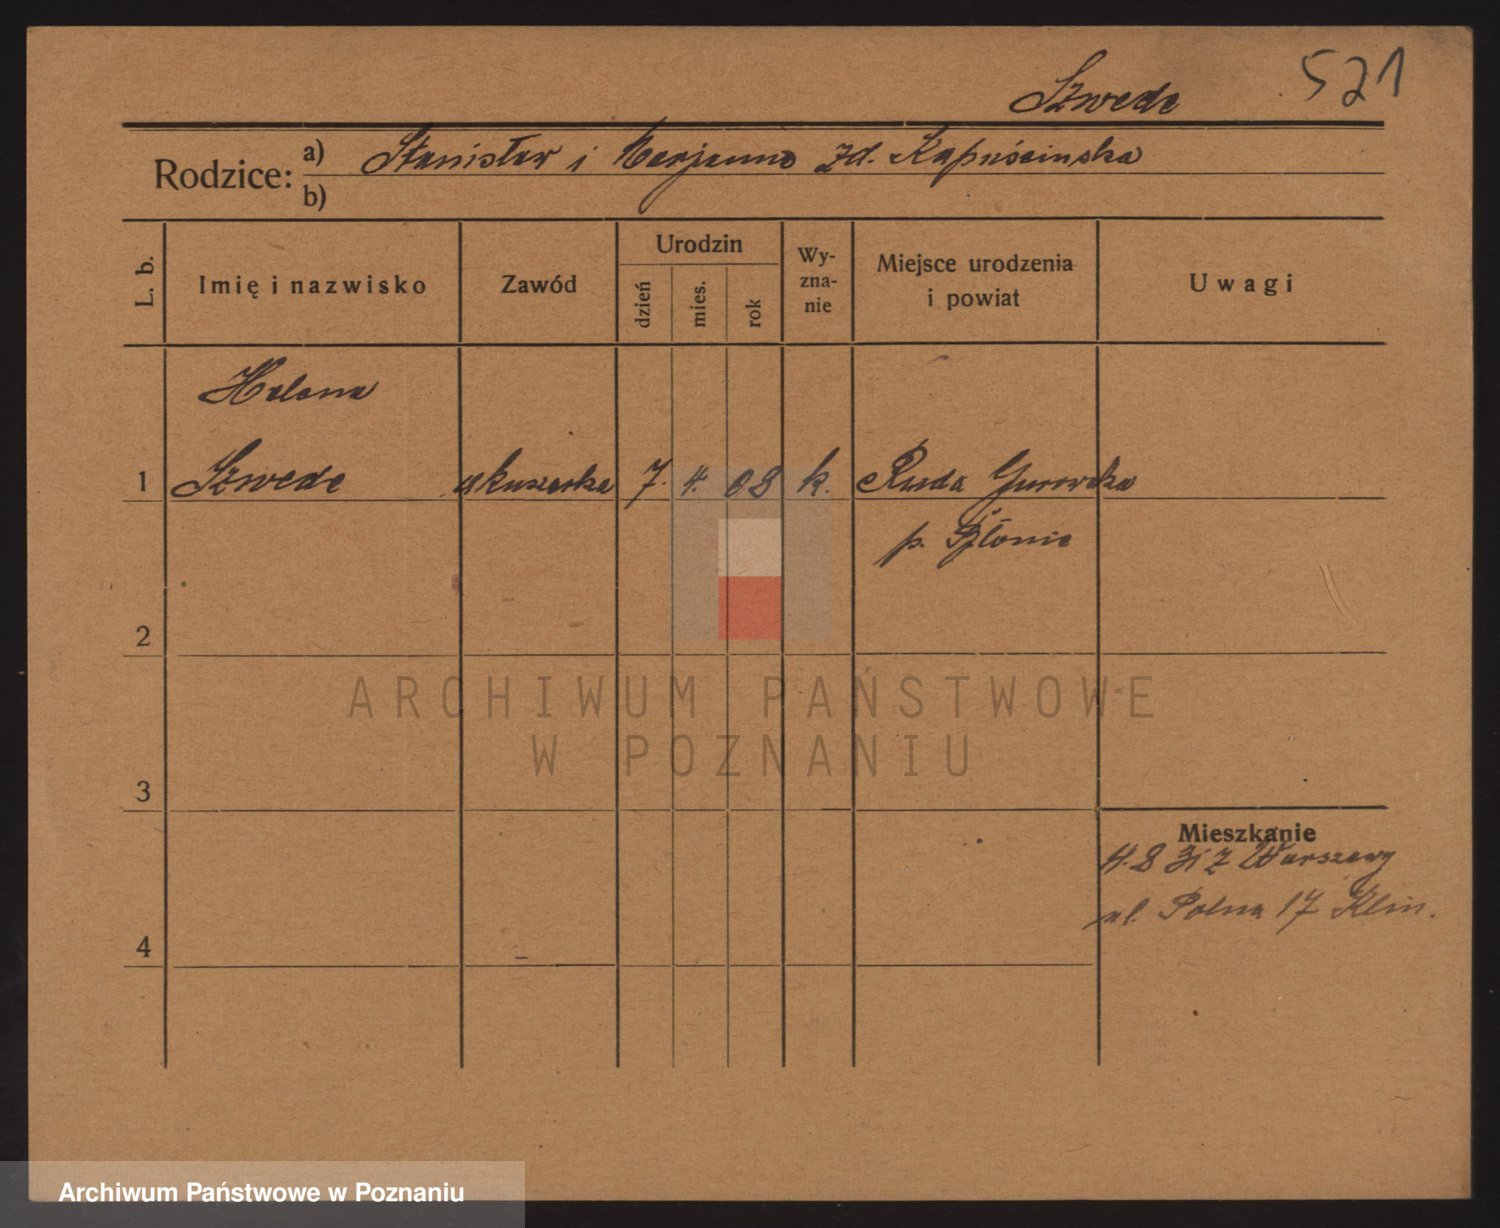 521
Szwede
Rodzice: a) Stanisław i Marjanna zd. Kapuścińska
b)
L. b. Imię i nazwisko Zawód Urodzin dzień mies. rok Wy-zna-nie Miejsce urodzenia i powiat Uwagi
Helena
1 Szwede akuszerka 7. 4. 08 k. Ruda Guzowska
p. Błonie
2
ARCHIWUM PAŃSTWOWE
W POZNANIU
3
Mieszkanie
4.8 31 z Warszawy
ul. Polna 17 Klin.
4
Archiwum Państwowe w Poznaniu